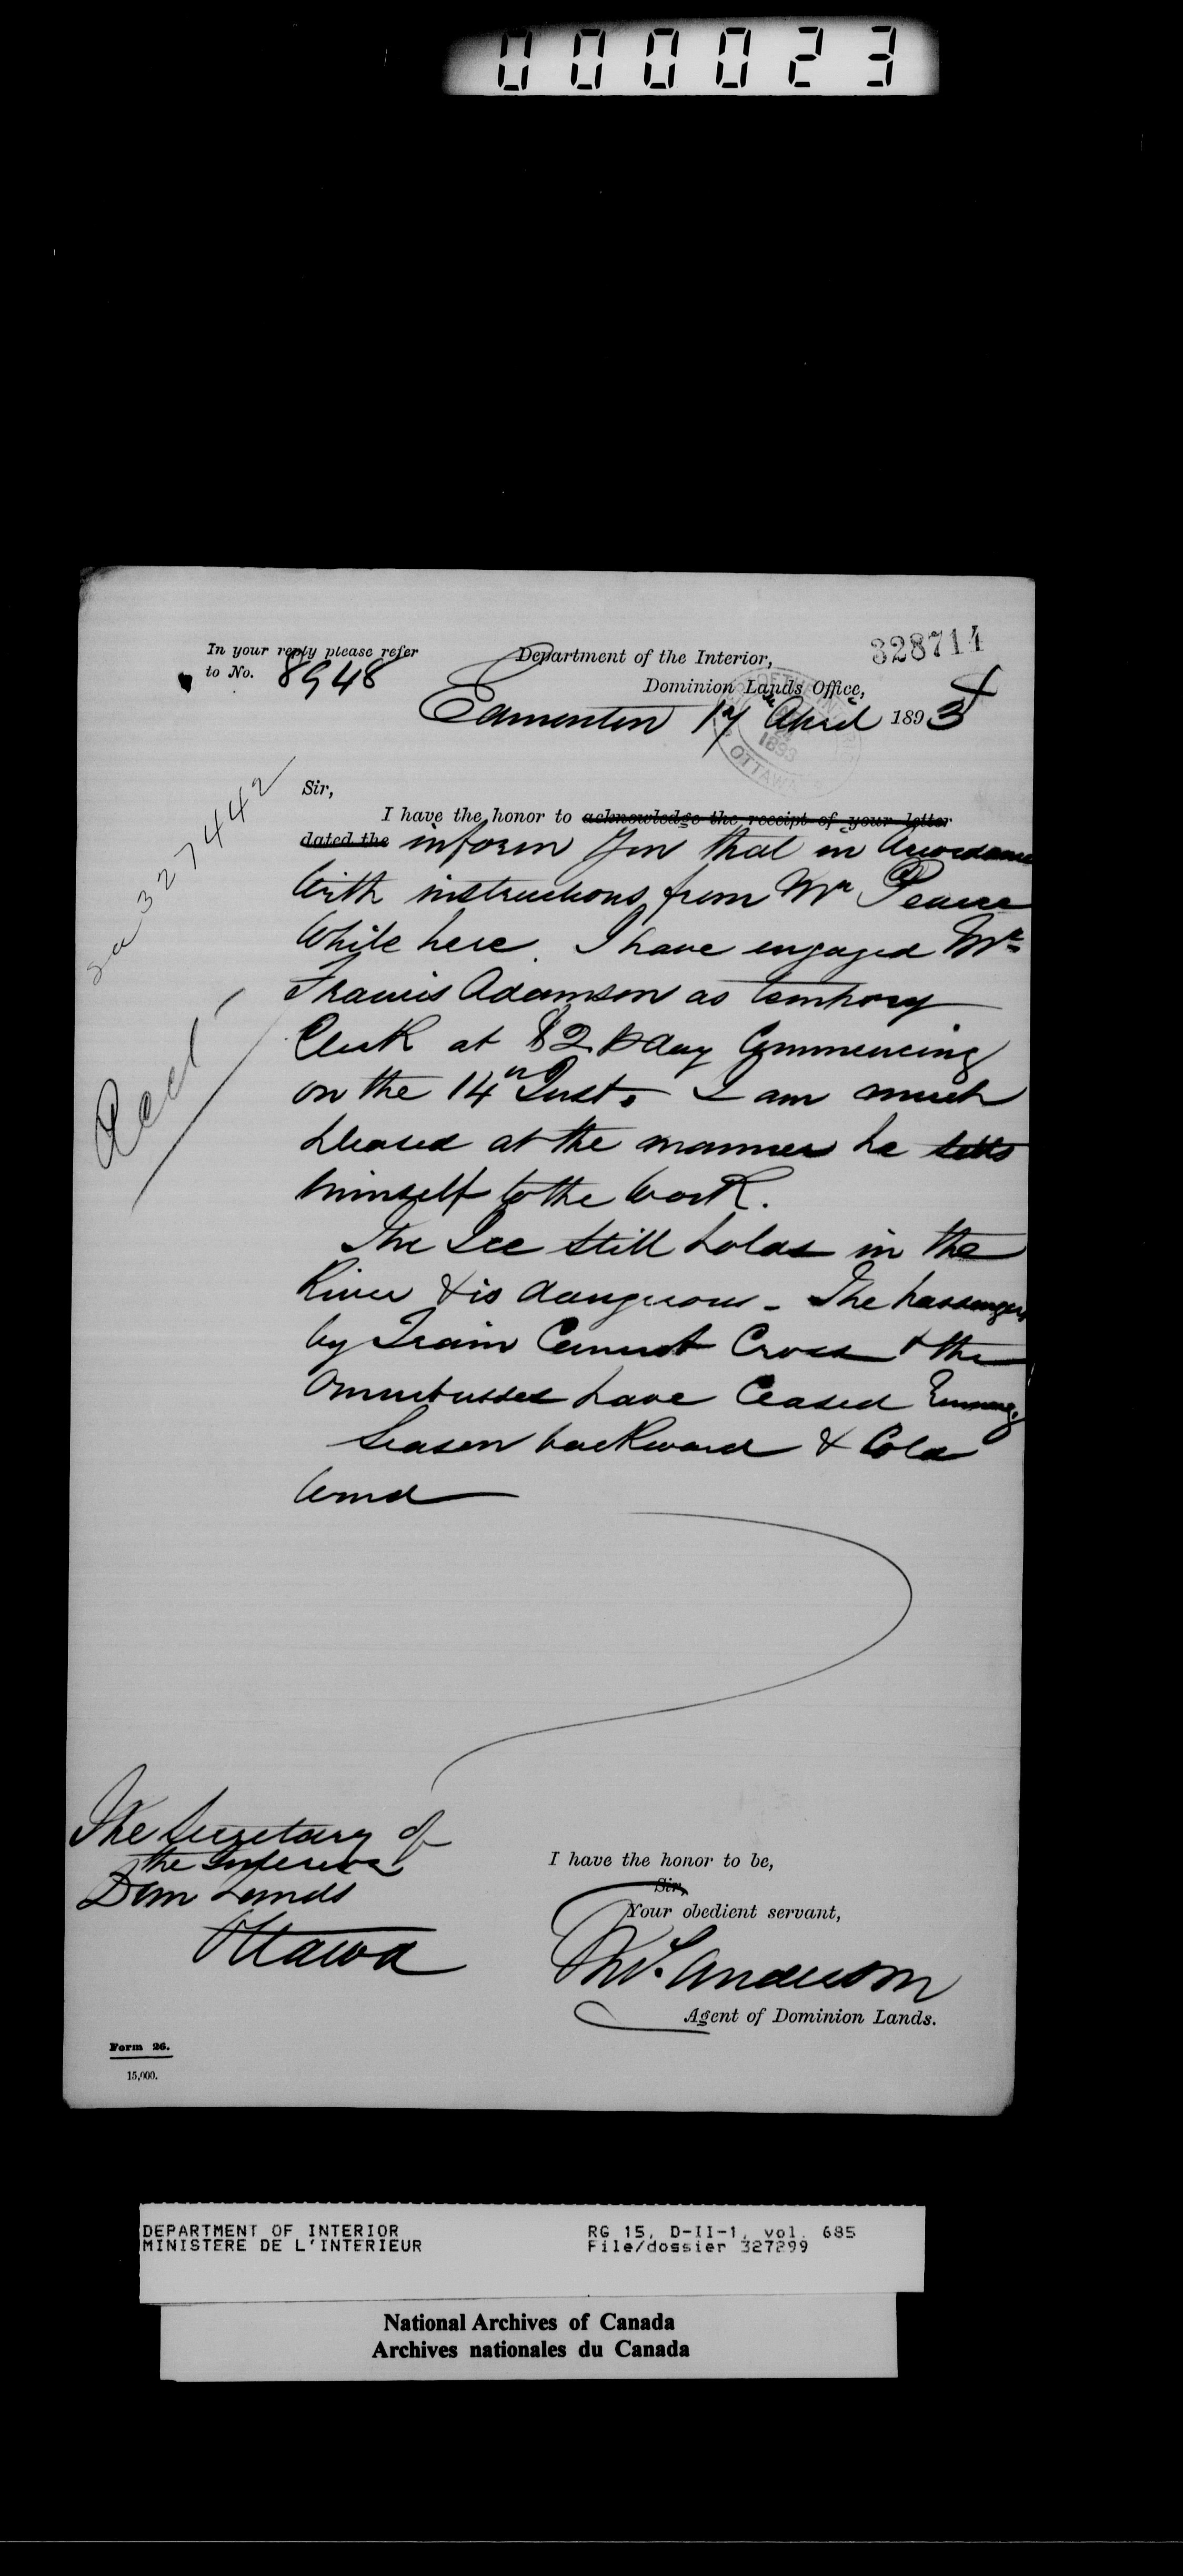 000023
328714
In your reply please refer
to No. 8948
Department of the Interior,
Dominion Lands Office,
Edmonton 17th April 1893
OTTAWA
1893
Sir,
I have the honor to acknowledge the receipt of your letter
dated the inform you that in accordance
with instructions from Mr Pearce
while here. I have engaged Mr
Francis Adamson as tempory
Clerk at $2 p day Commencing
on the 14th Inst. I am much
pleased at the manner he setts
himself to the work.
The Ice still holds in the
River & is dangerous - The passengers
by Train Cannot Cross & the
Omnibusses have Ceased Running.
Season backward & Cold
Wind
327442
Recd
The Secretary of
the Interior
Dom Lands
Ottawa
I have the honor to be,
Sir,
Your obedient servant,
Anderson
Agent of Dominion Lands.
Form 26.
15,000.
DEPARTMENT OF INTERIOR
MINISTERE DE L'INTERIEUR
RG 15, D-II-1, vol. 685
File/dossier 327299
National Archives of Canada
Archives nationales du Canada